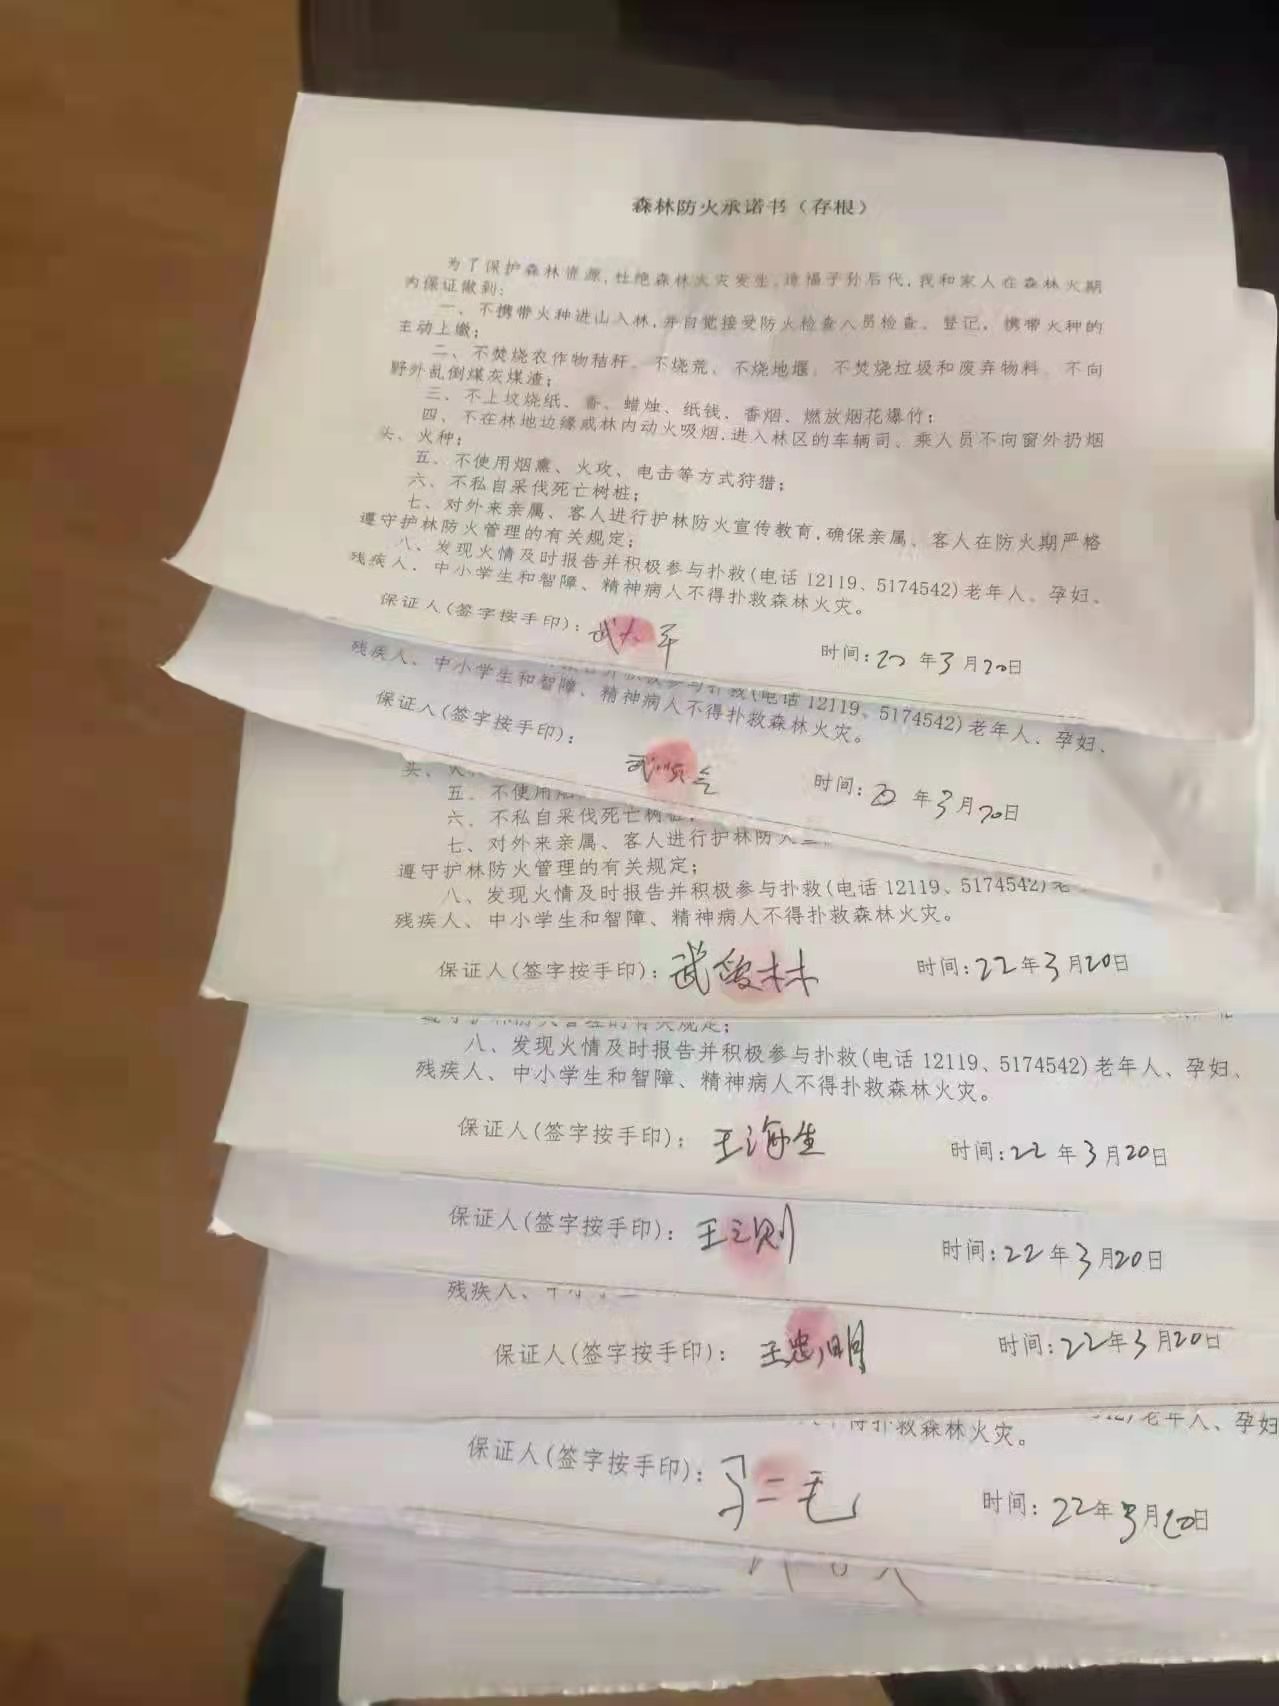 森林防火承诺书（存根）
为了保护森林资源,杜绝森林火灾发生,造福子孙后代,我和家人在森林火期
内保证做到:
一、不携带火种进山入林,并自觉接受防火检查人员检查、登记,携带火种的
主动上缴;
二、不焚烧农作物秸秆、不烧荒、不烧地堰、不焚烧垃圾和废弃物料、不向
野外乱倒煤灰煤渣;
三、不上坟烧纸、香、蜡烛、纸钱、香烟、燃放烟花爆竹;
四、不在林地边缘或林内动火吸烟,进入林区的车辆司、乘人员不向窗外扔烟
头、火种;
五、不使用烟熏、火攻、电击等方式狩猎;
六、不私自采伐死亡树桩;
七、对外来亲属、客人进行护林防火宣传教育,确保亲属、客人在防火期严格
遵守护林防火管理的有关规定;
八、发现火情及时报告并积极参与扑救(电话12119、5174542)老年人、孕妇、
残疾人、中小学生和智障、精神病人不得扑救森林火灾。
保证人(签字按手印): 时间:22年3月20日
(电话12119、5174542)老年人、孕妇、
残疾人、中小学生和智障、精神病人不得扑救森林火灾。
保证人(签字按手印): 时间:22年3月20日
五、不使用
六、不私自采伐死亡树桩;
七、对外来亲属、客人进行护林防火
遵守护林防火管理的有关规定;
八、发现火情及时报告并积极参与扑救(电话12119、5174542)老
残疾人、中小学生和智障、精神病人不得扑救森林火灾。
保证人(签字按手印):武俊林 时间:22年3月20日
遵守护林防火管理的有关规定;
八、发现火情及时报告并积极参与扑救(电话12119、5174542)老年人、孕妇、
残疾人、中小学生和智障、精神病人不得扑救森林火灾。
保证人(签字按手印):王海生 时间:22年3月20日
保证人(签字按手印):王三则 时间:22年3月20日
残疾人、中小学生
保证人(签字按手印):王忠明 时间:22年3月20日
老年人、孕妇
不得扑救森林火灾。
保证人(签字按手印):马二毛 时间:22年3月20日